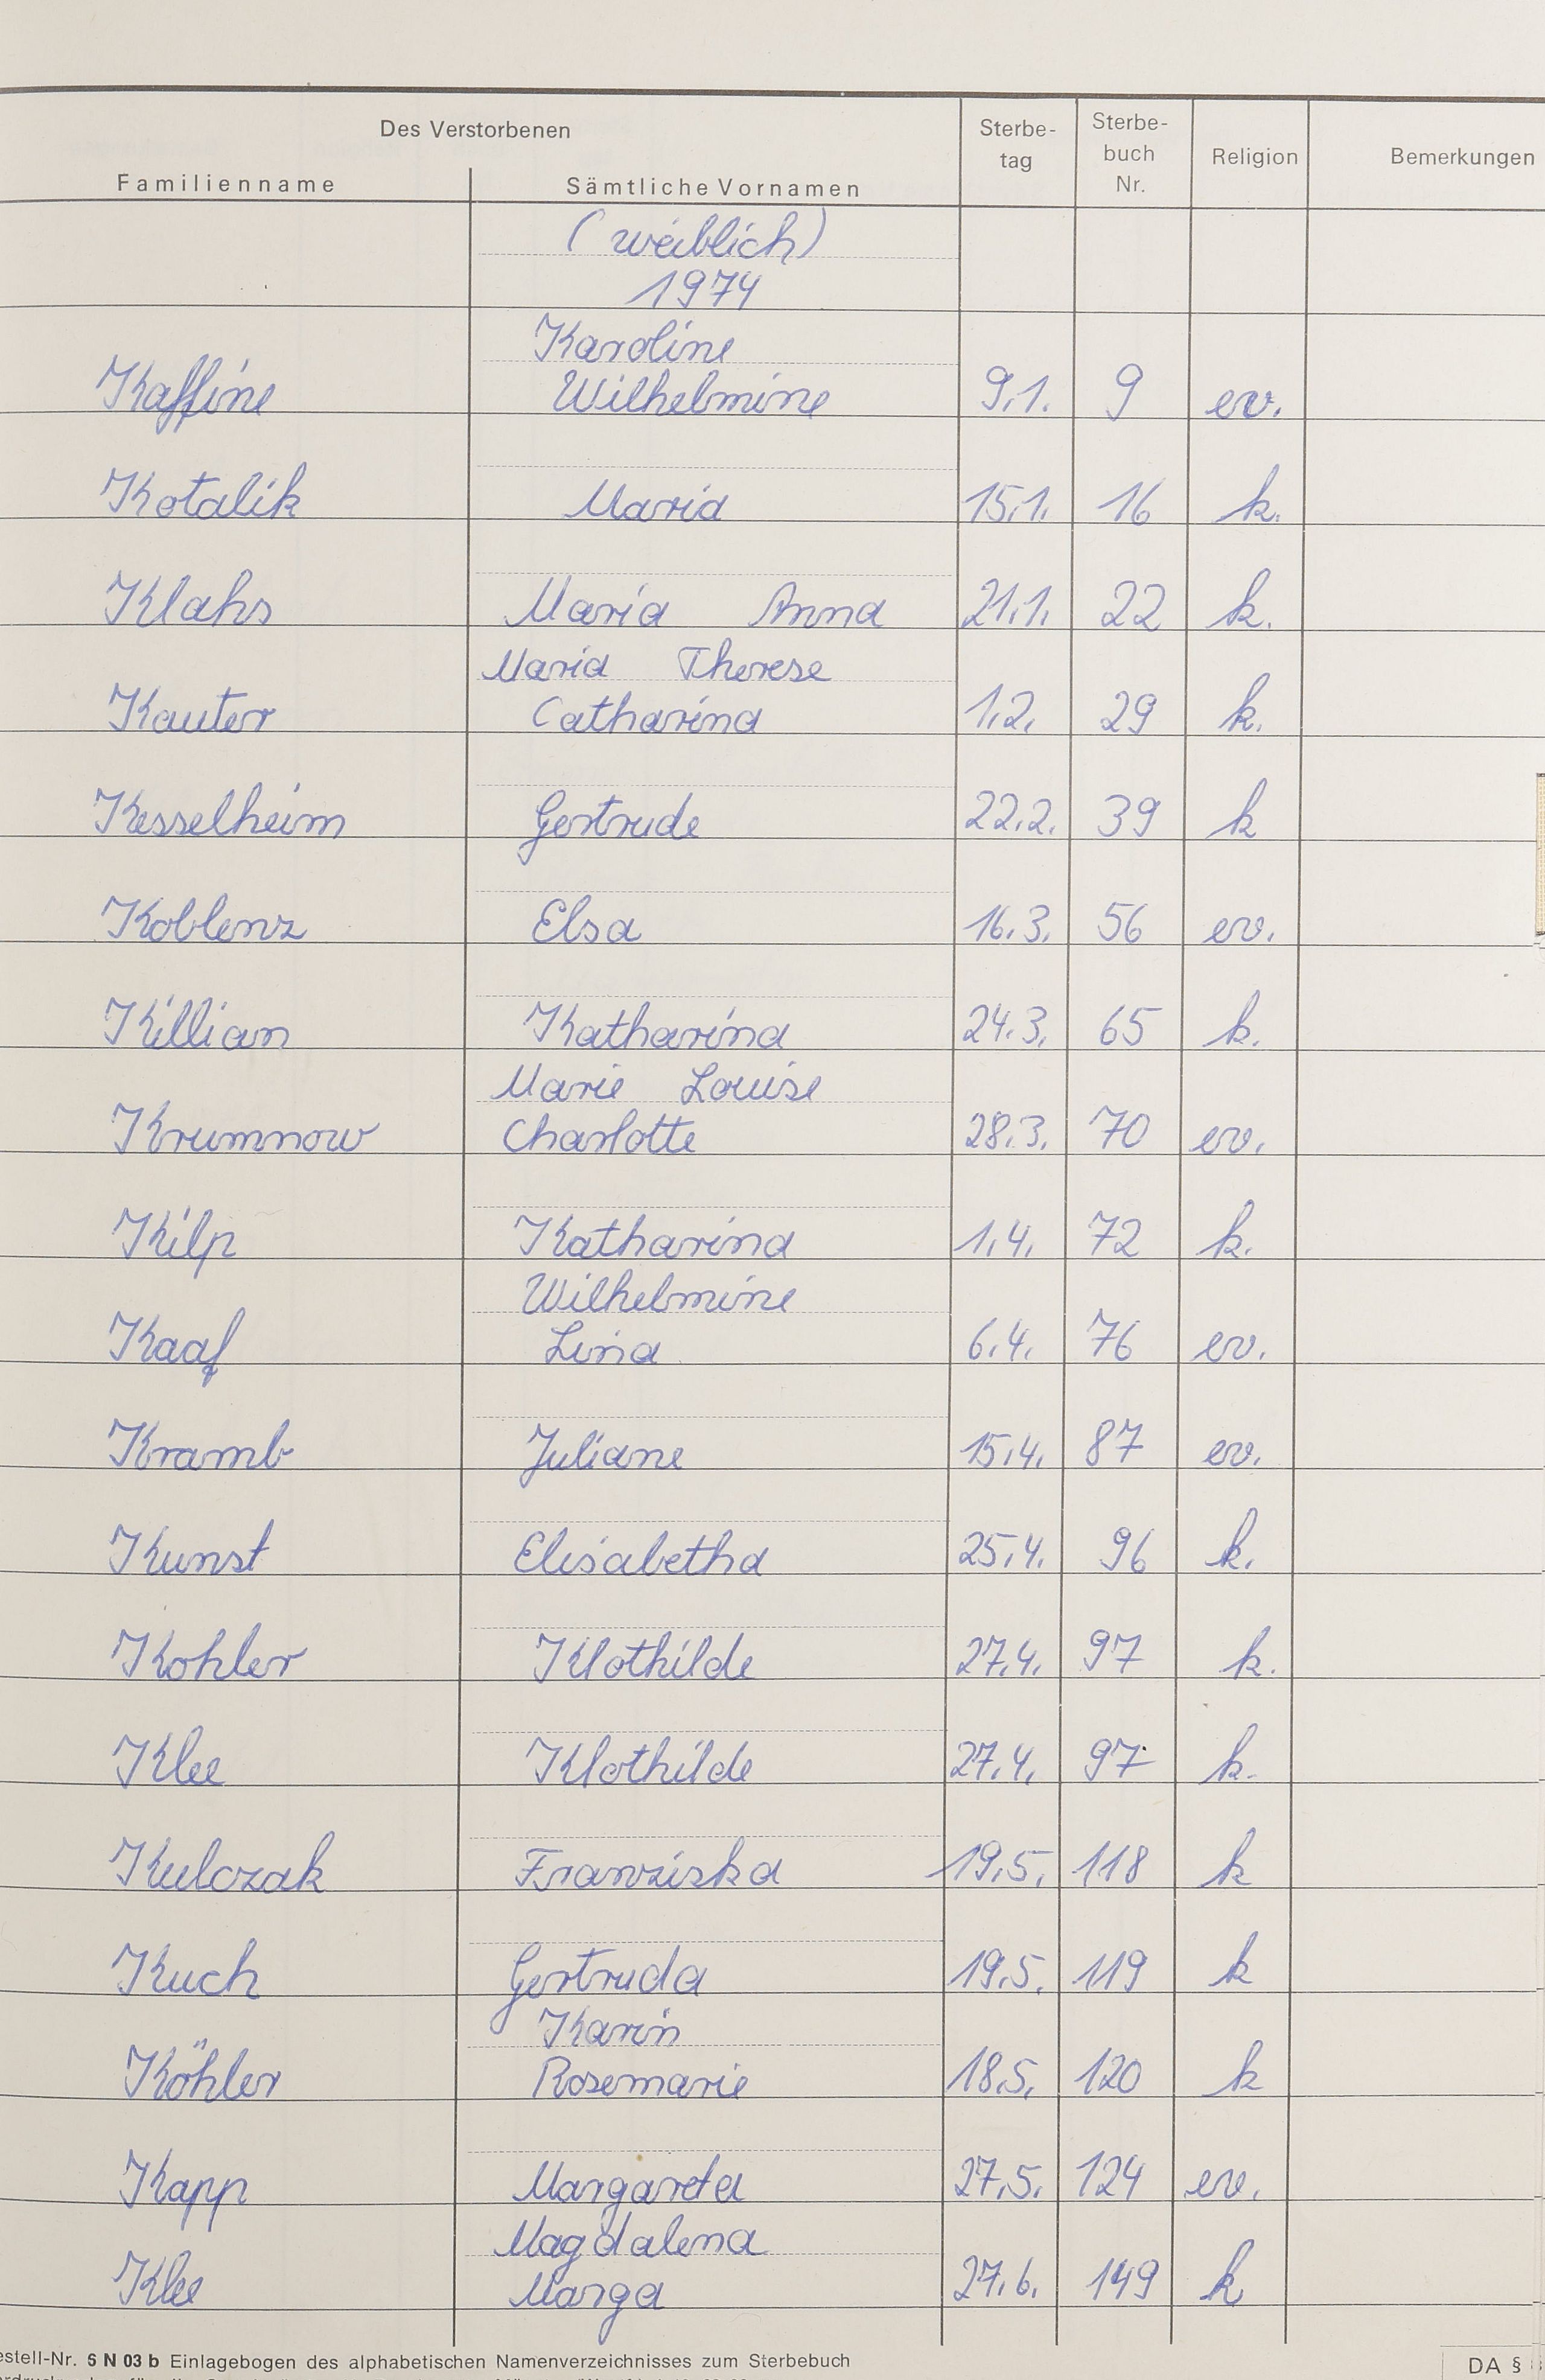 Des Verstorbenen
Sterbe-
tag
Sterbe-
buch
Nr.
Religion
Bemerkungen
Familienname
Sämtliche Vornamen
(weiblich)
1974
Karoline
Kaffine Wilhelmine 9.1. 9 ev.
Kotalik Maria 15.1. 16 k.
Klahs Maria Anna 21.1. 22 k.
Maria Therese
Kauter Catharina 1.2. 29 k.
Kesselheim Gertrude 22.2. 39 k
Koblenz Elsa 16.3. 56 ev.
Killian Katharina 24.3. 65 k.
Marie Louise
Krumnow Charlotte 28.3. 70 ev.
Kilp Katharina 1.4. 72 k.
Wilhelmine
Kaaf Lina 6.4. 76 ev.
Kramb Juliane 15.4. 87 ev.
Kunst Elisabetha 25.4. 96 k.
Kohler Klothilde 27.4. 97 k.
Klee Klothilde 27.4. 97 k.
Kulczak Franziska 19.5. 118 k
Kuch Gertruda 19.5. 119 k
Karin
Köhler Rosemarie 18.5. 120 k
Kapp Margareta 27.5. 124 ev.
Magdalena
Klee Marga 27.6. 149 k
estell-Nr. 6 N 03 b Einlagebogen des alphabetischen Namenverzeichnisses zum Sterbebuch
DA §